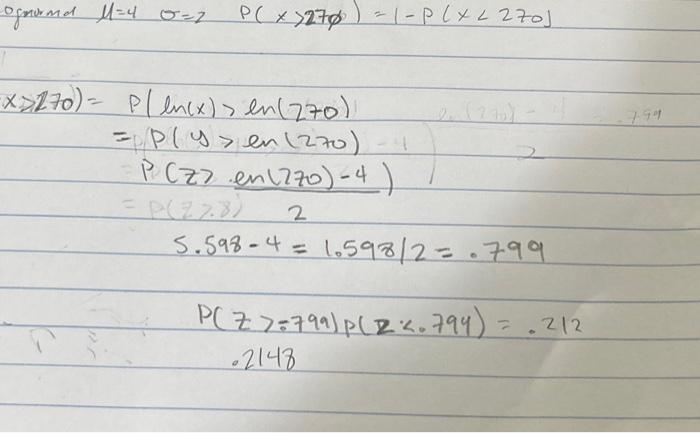 ognormal μ=4 σ=2 P(x>270) = 1-P(x<270)
x>270) = P(ln(x) > ln(270)
= P(y > ln(270)
P(Z> ln(270)-4)
= P(Z>.8) 2
5.598-4 = 1.598/2 = .799
P(Z>.799) P(Z<.799) = .212
.2148